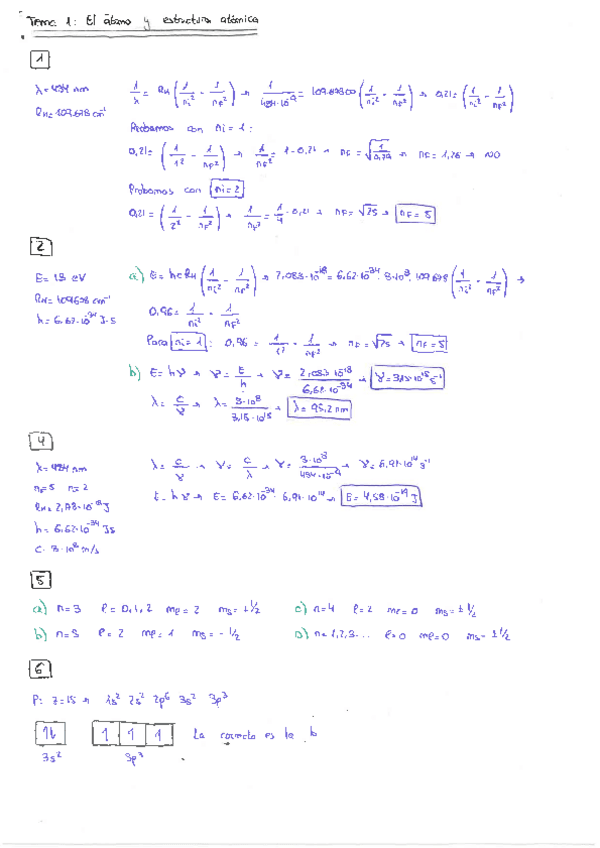 Tema 1: El átomo y estructura atómica
1
λ=434 nm
RH=109.678 cm⁻¹
1/λ = RH (1/ni² - 1/nF²) → 1/434·10⁻⁹ = 10967800 (1/ni² - 1/nF²) → 0,21= (1/ni² - 1/nF²)
Probamos con ni=1:
0,21= (1/1² - 1/nF²) → 1/nF² = 1-0,21 → nF = √(1/0,79) → nF=1,26 → NO
Probamos con ni=2
0,21 = (1/2² - 1/nF²) → 1/nF² = 1/4 - 0,21 → nF=√25 → nF=5
2
E= 13 eV
RH=109678 cm⁻¹
h= 6,62·10⁻³⁴ J·S
a) E= hcRH (1/ni² - 1/nF²) → 2,083·10⁻¹⁸=6,62·10⁻³⁴·3·10⁸·109678 (1/ni² - 1/nF²) →
0,96= 1/ni² - 1/nF²
Para ni=1: 0,96 = 1/1² - 1/nF² → nF=√25 → nF=5
b) E=hγ → γ= E/h → γ= 2,083·10⁻¹⁸/6,62·10⁻³⁴ → γ=3,15·10¹⁵s⁻¹
λ= c/γ → λ= 3·10⁸/3,15·10¹⁵ → λ=95,2 nm
4
λ=434 nm
nF=5 ni=2
RH=2,18·10⁻¹⁸J
h=6,62·10⁻³⁴ Js
c=3·10⁸ m/s
λ= c/γ → γ= c/λ → γ= 3·10⁸/434·10⁻⁹ → γ=6,91·10¹⁴ s⁻¹
E=hγ → E=6,62·10⁻³⁴·6,91·10¹⁴ → E=4,58·10⁻¹⁹ J
5
a) n=3 l=0,1,2 ml=2 ms=±1/2
c) n=4 l=2 ml=0 ms=±1/2
b) n=5 l=2 ml=1 ms=-1/2
D) n=1,2,3... l=0 ml=0 ms=±1/2
6
P: Z=15 → 1s² 2s² 2p⁶ 3s² 3p³
1l 1 1 1 La correcta es la b
3s² 3p³